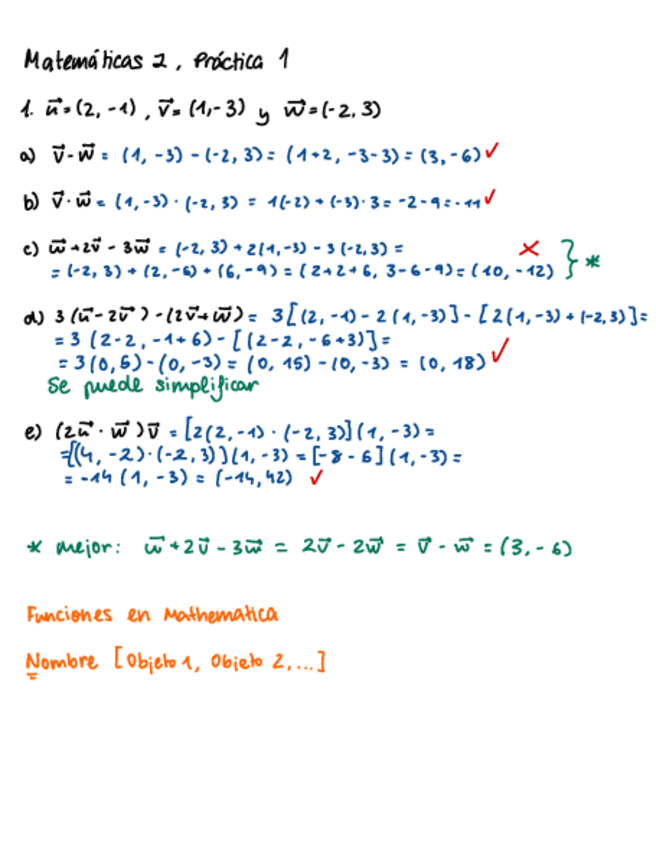 Matemáticas 2, Práctica 1
1. u⃗=(2, -1), v⃗=(1,-3) y w⃗=(-2,3)
a) v⃗-w⃗ = (1, -3) - (-2, 3) = (1+2, -3-3) = (3, -6) ✓
b) v⃗·w⃗ = (1,-3)·(-2, 3) = 1(-2) + (-3)·3 = -2-9 = -11 ✓
c) w⃗+2v⃗-3w⃗ = (-2, 3)+2(1,-3)-3(-2,3) = ✗
= (-2, 3) + (2, -6) + (6, -9) = (2+2+6, 3-6-9) = (10, -12) } *
d) 3(u⃗-2v⃗)-(2v⃗+w⃗) = 3[(2, -1) - 2(1,-3)] - [2(1,-3)+(-2,3)] =
= 3(2-2, -1+6) - [(2-2, -6+3)] =
= 3(0,5)-(0, -3) = (0, 15) - (0, -3) = (0, 18) ✓
Se puede simplificar
e) (2u⃗·w⃗)v⃗ = [2(2,-1)·(-2, 3)](1, -3) =
=[(4, -2)·(-2,3)](1, -3) = [-8-6](1,-3) =
= -14(1, -3) = (-14, 42) ✓
* mejor: w⃗+2v⃗-3w⃗ = 2v⃗-2w⃗ = v⃗-w⃗ = (3,-6)
Funciones en Mathematica
Nombre [Objeto 1, Objeto 2,...]